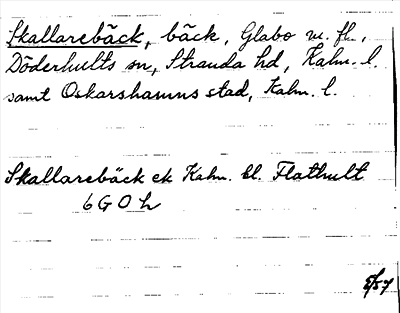 Skallarebäck, bäck, Glabo m. fl.,
Döderhults sn, Stranda hd, Kalm. l.
samt Oskarshamns stad, Kalm. l.
Skallarebäck ek Kalm. bl. Flathult
6 G 0 h